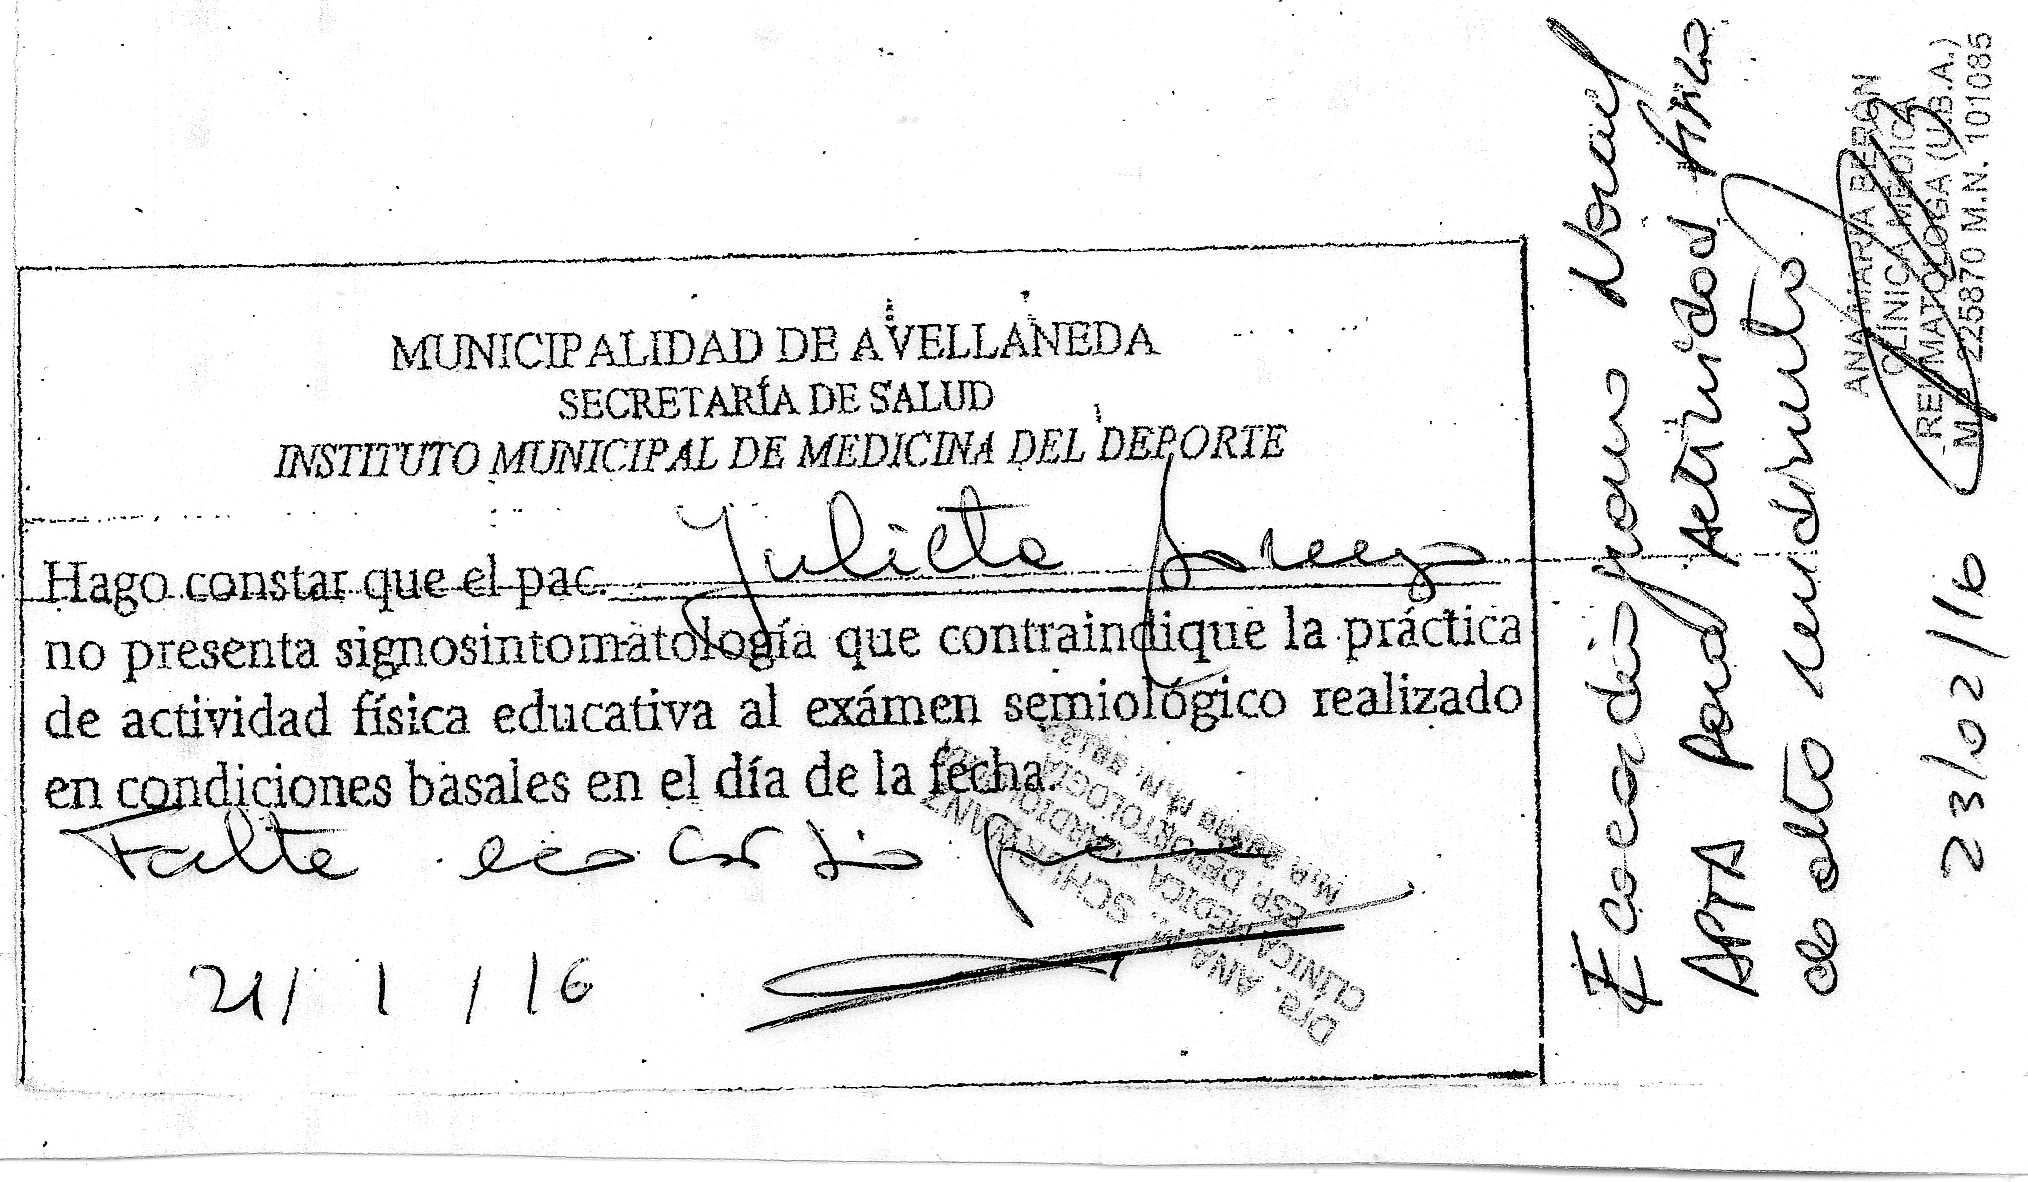 MUNICIPALIDAD DE AVELLANEDA
SECRETARÍA DE SALUD
INSTITUTO MUNICIPAL DE MEDICINA DEL DEPORTE
Hago constar que el pac. Julieta
no presenta signosintomatología que contraindique la práctica
de actividad física educativa al exámen semiológico realizado
en condiciones basales en el día de la fecha.
Falta ecocardiograma
21/1/16
Dra. ANA M.
CLÍNICA MEDICA
Ecocardiograma Normal
APTA para Actividad física
de alto rendimiento
23/02/16
ANA MARIA BERÓN
CLÍNICA MEDICA
REUMATOLOGA (U.B.A.)
M.P. 225870 M.N. 101085